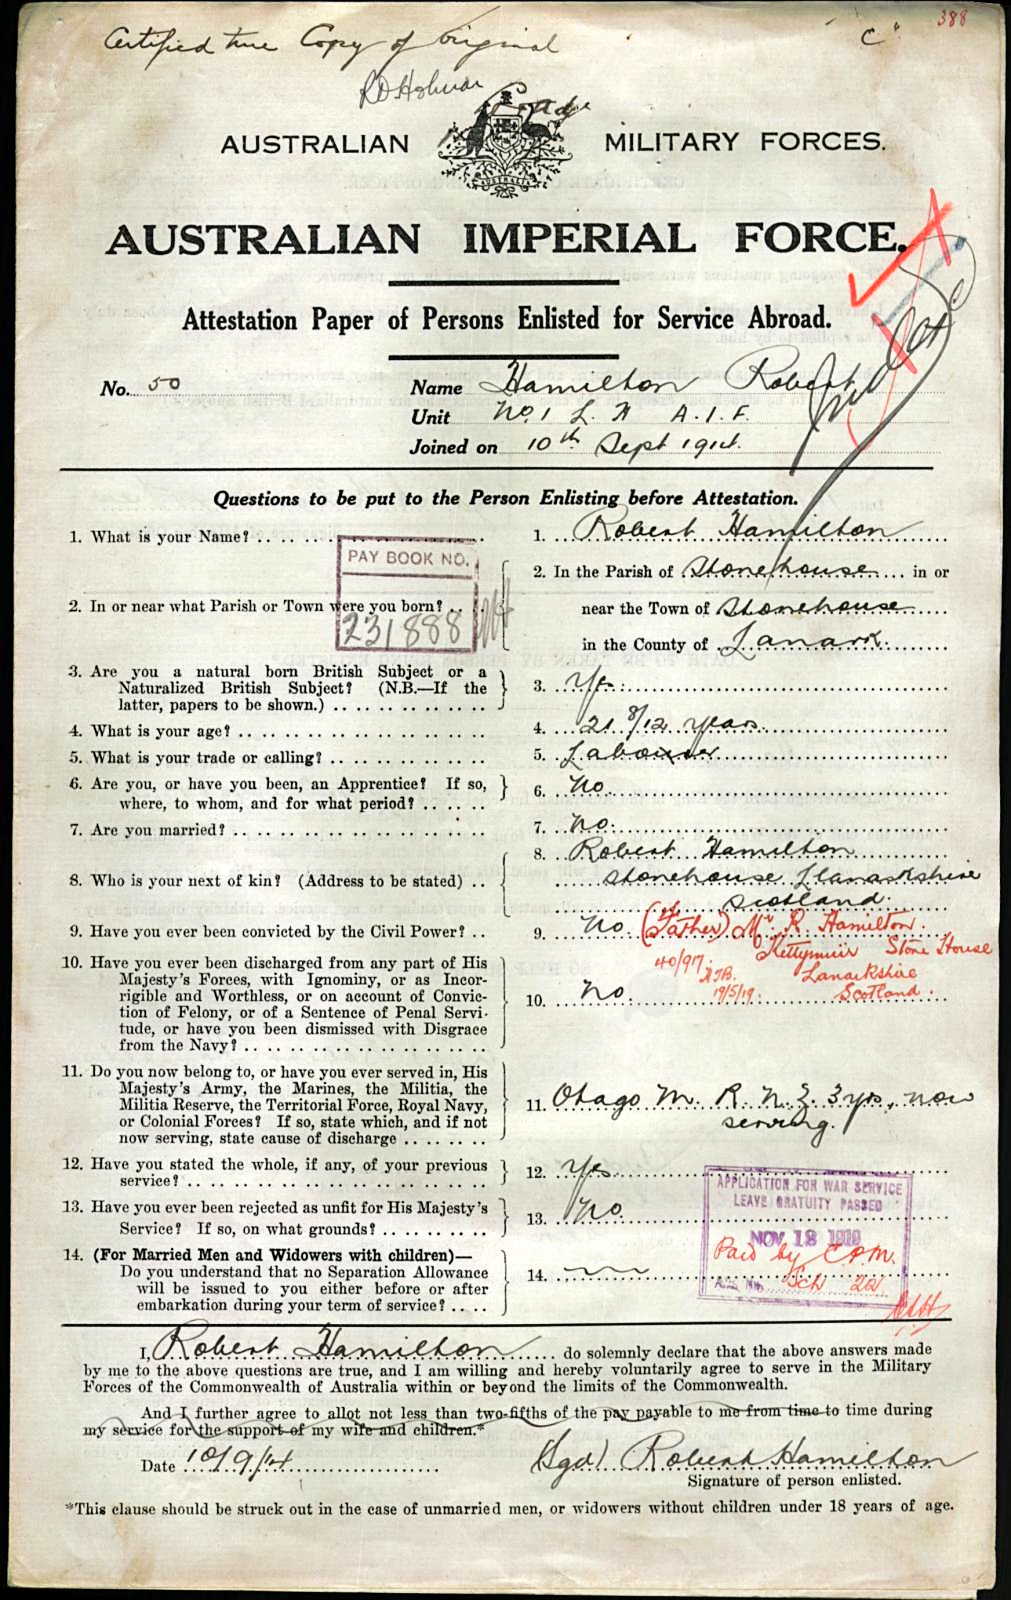 388
Certified true Copy of Original
"C"
AUSTRALIAN MILITARY FORCES.
AUSTRALIA
AUSTRALIAN IMPERIAL FORCE.
Attestation Paper of Persons Enlisted for Service Abroad.
No. 50
Name Hamilton Robert
Unit No. 1 L. H A.I.F.
Joined on 10th Sept 1914.
Questions to be put to the Person Enlisting before Attestation.
1. What is your Name?
1. Robert Hamilton
PAY BOOK NO.
231888
2. In or near what Parish or Town were you born?
2. In the Parish of Stonehouse in or
near the Town of Stonehouse
in the County of Lanark.
3. Are you a natural born British Subject or a
Naturalized British Subject? (N.B.—If the
latter, papers to be shown.)
3. Yes.
4. What is your age?
4. 21 8/12 years
5. What is your trade or calling?
5. Labourer
6. Are you, or have you been, an Apprentice? If so,
where, to whom, and for what period?
6. No.
7. Are you married?
7. No.
8. Who is your next of kin? (Address to be stated)
8. Robert Hamilton
Stonehouse Llanarkshire
Scotland.
9. Have you ever been convicted by the Civil Power?
9. No.
(Father) Mr R. Hamilton.
Kittymuir Stone House
Lanarkshire
Scotland.
40/917.
19/5/19.
10. Have you ever been discharged from any part of His
Majesty's Forces, with Ignominy, or as Incor-
rigible and Worthless, or on account of Convic-
tion of Felony, or of a Sentence of Penal Servi-
tude, or have you been dismissed with Disgrace
from the Navy?
10. No.
11. Do you now belong to, or have you ever served in, His
Majesty's Army, the Marines, the Militia, the
Militia Reserve, the Territorial Force, Royal Navy,
or Colonial Forces? If so, state which, and if not
now serving, state cause of discharge
11. Otago M. R. N.Z. 3 yrs, now
serving.
12. Have you stated the whole, if any, of your previous
service?
12. Yes
13. Have you ever been rejected as unfit for His Majesty's
Service? If so, on what grounds?
13. No
APPLICATION FOR WAR SERVICE
LEAVE GRATUITY PASSED
NOV 18 1919
Paid by C.P.M.
Sch 22
14. (For Married Men and Widowers with children)—
Do you understand that no Separation Allowance
will be issued to you either before or after
embarkation during your term of service?
14.
I, Robert Hamilton do solemnly declare that the above answers made
by me to the above questions are true, and I am willing and hereby voluntarily agree to serve in the Military
Forces of the Commonwealth of Australia within or beyond the limits of the Commonwealth.
And I further agree to allot not less than two-fifths of the pay payable to me from time to time during
my service for the support of my wife and children.*
Date 10/9/14
(Sgd) Robert Hamilton
Signature of person enlisted.
*This clause should be struck out in the case of unmarried men, or widowers without children under 18 years of age.